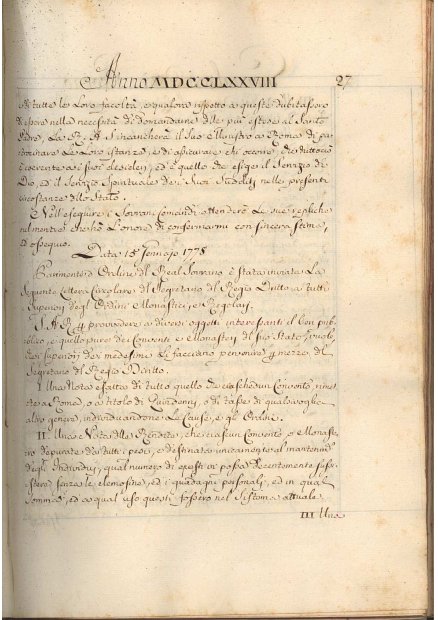 Anno MDCCLXXVIII 27
di tutte le Loro facoltà, e qualora rispetto a queste dubitassero
d'essere nella necessità di domandarne delle più estese al Santo
Padre, La R. A. S. incaricherà il suo Ministro a Roma di pa-
trocinare le Loro istanze, e di assicurare chi occorre, che tutto ciò
è coerente a i suoi desiderj, ed è quello che esige il Servizio di
Dio, ed il Servizio Spirituale de i Suoi Sudditi nelle presenti
circostanze dello Stato.
Nell'eseguire i Sovrani Comandi attenderò Le sue repliche
nel mentre che ho L'onore di confermarmi con sincera stima,
ed ossequio.
Data 15 Gennajo 1778
Parimente d'Ordine del Real Sovrano è stata inviata La
seguente Lettera Circolare del Segretario del Regio Dritto a tutti
i Superiori degl'Ordini Monastici, e Regolari.
S. A. R. per provvedere a diversi oggetti interessanti il ben pub-
blico, e quello pure dei Conventi e Monasteri del suo Stato, vuole,
che i Superiori dei medesimi Le facciano pervenire per mezzo del
Segretario del Regio Diritto.
I Una Nota esatta di tutto quello che ciaschedun Convento rimet-
te a Roma, o a titolo di Quindenni, o di tasse di qualsivoglia
altro genere, individuandone Le Cause, e gl'Ordini.
II. Una Nota delle Rendite, che ciascun Convento, o Monaste-
ro depurate da tutti i pesi, e destinate unicamente al mantenim.
degl'Individui, qual numero di questi ne possa decentemente sussi-
stere senza le elemosine, ed i guadagni personali, ed in qual
somma, ed a qual uso questi fossero nel Sistema attuale.
III Una